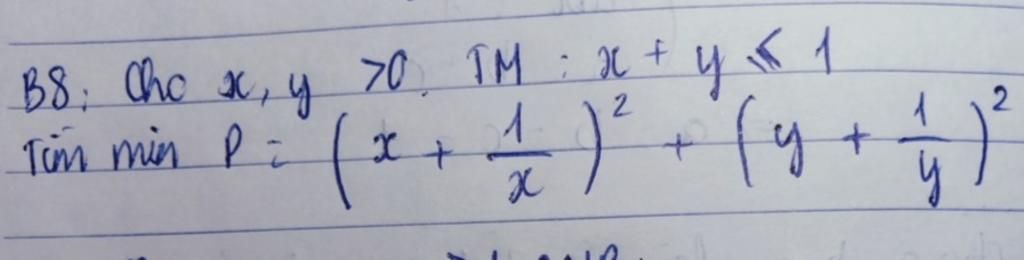 B8: Cho x, y >0. TM : x + y ⩽ 1
Tìm min P = (x + 1/x)² + (y + 1/y)²